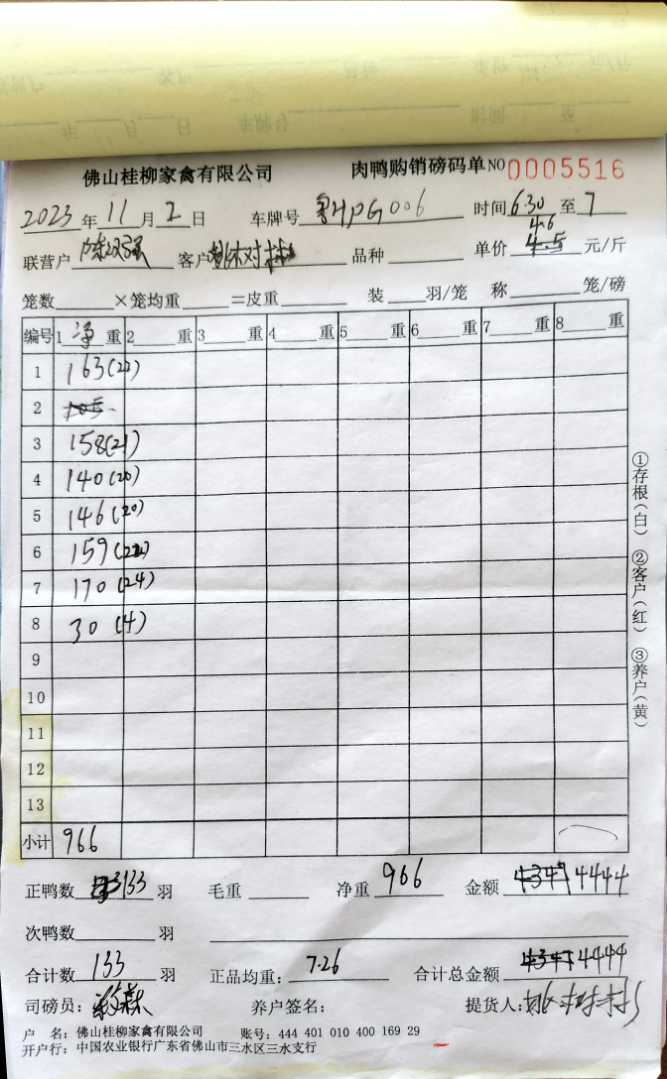 佛山桂柳家禽有限公司 肉鸭购销磅码单 NO 0005516
2023年11月2日 车牌号 粤HPG006 时间 6.30 至 7
4.6
联营户 客户 品种 单价 4.5 元/斤
笼数 ×笼均重 =皮重 装 羽/笼 称 笼/磅
编号 1 净 重 2 重 3 重 4 重 5 重 6 重 7 重 8 重
1 163(22)
2
3 158(21)
4 140(20)
5 146(20)
6 159(22)
7 170(24)
8 30(4)
9
10
11
12
13
小计 966
①存根(白) ②客户(红) ③养户(黄)
正鸭数 133 羽 毛重 净重 966 金额 4347 4444
次鸭数 羽
合计数 133 羽 正品均重: 7.26 合计总金额 4347 4444
司磅员: 养户签名: 提货人:
户 名: 佛山桂柳家禽有限公司 账号: 444 401 010 400 169 29
开户行: 中国农业银行广东省佛山市三水区三水支行